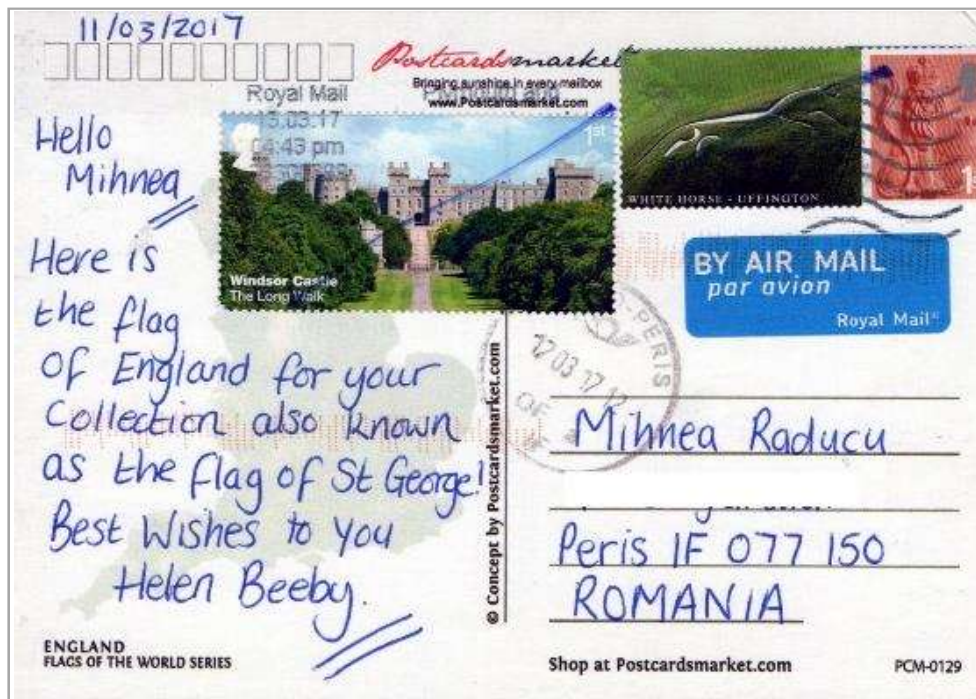 11/03/2017
Postcardsmarket
Bringing sunshine in every mailbox
www.Postcardsmarket.com
Royal Mail
13.03.17
04:43 pm
1st
Windsor Castle
The Long Walk
WHITE HORSE - UFFINGTON
BY AIR MAIL
par avion
Royal Mail
Hello
Mihnea
Here is
the flag
of England for your
Collection also known
as the flag of St George!
Best Wishes to You
Helen Beeby.
PERIS
17 03 17
OF
© Concept by Postcardsmarket.com
Mihnea Raducu
Peris IF 077 150
ROMANIA
ENGLAND
FLAGS OF THE WORLD SERIES
Shop at Postcardsmarket.com
PCM-0129